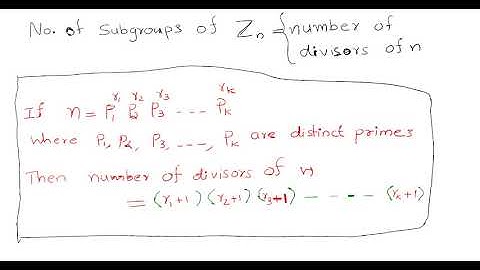 No. of Subgroups of Zₙ = { number of
divisors of n
If n = P₁^r₁ P₂^r₂ P₃^r₃ --- Pₖ^rₖ
where P₁, P₂, P₃, ---, Pₖ are distinct primes
Then number of divisors of n
= (r₁+1) (r₂+1) (r₃+1) - - - - (rₖ+1)